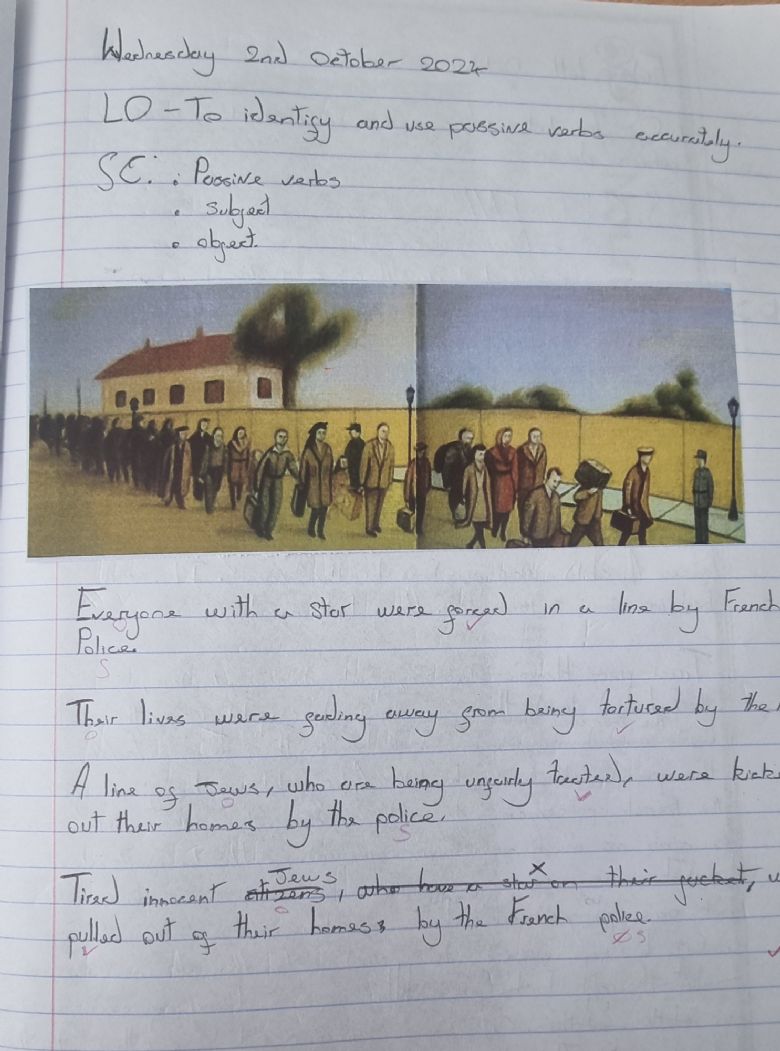 Wednesday 2nd October 2024
LO - To identify and use passive verbs accurately.
SC: • Passive verbs
• subject
• object.
Everyone with a star were forced in a line by French
Police.
S
Their lives were fading away from being tortured by the
O
A line of Jews, who are being unfairly treated, were kick
O
out their homes by the police.
S
Jews
Tired innocent citizens, who have a star on their jacket,
O
pulled out of their homes by the French police.
S